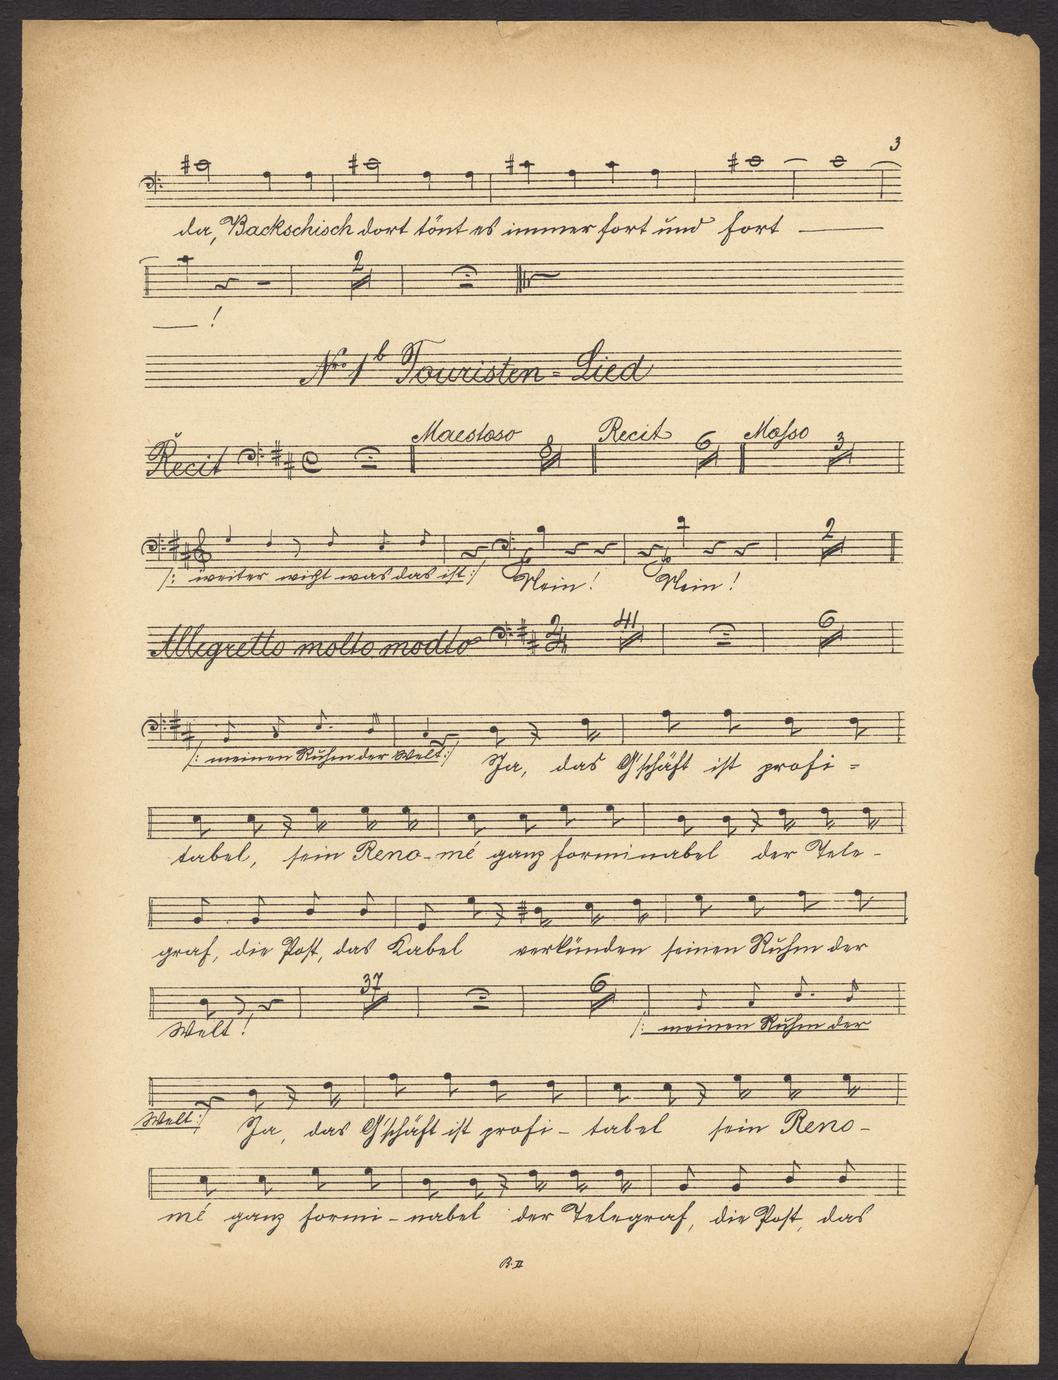 3
da, Backschisch dort tönt es immer fort und fort
!
2
Nro. 1b Touristen=Lied
Recit Maestoso 8 Recit 6 Mosso 3
/: weiter nicht was das ist :/ Nein! Nein! 2
Allegretto molto modto 2/4 41 6
/: meinen Ruhm der Welt :/ Ja, das G'schäft ist profi=
tabel, sein Reno-mé ganz forminabel der Tele-
graf, die Post, das Kabel verkünden seinen Ruhm der
37 6
Welt! /: meinen Ruhm der
Welt :/ Ja, das G'schäft ist profi-tabel sein Reno-
mé ganz formi-nabel der Telegraf, die Post, das
B. II